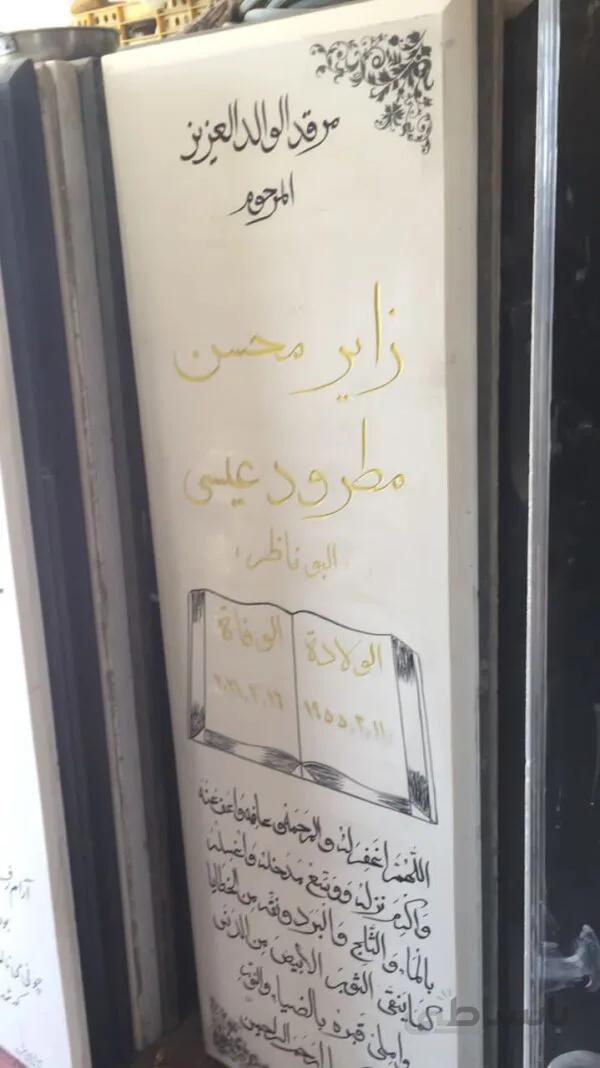 مرقد الوالد العزيز
المرحوم
زاير محسن
مطرود عيسى
البو ناظر
الولادة
١٩٥٥,٣,١١
الوفاة
اللهم اغفر له والرحمة وعافه واعف عنه
واكرم نزله ووسع مدخله واغسله
بالماء والثلج والبرد ونقه من الخطايا
كما ينقى الثوب الأبيض من الدنس
واملئ قبره بالضياء والنور
الرحم الراحمين
آرام
بساطی